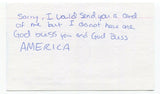 Sorry, I would send you a card
of me but I do not have one
God bless you and God Bless
AMERICA